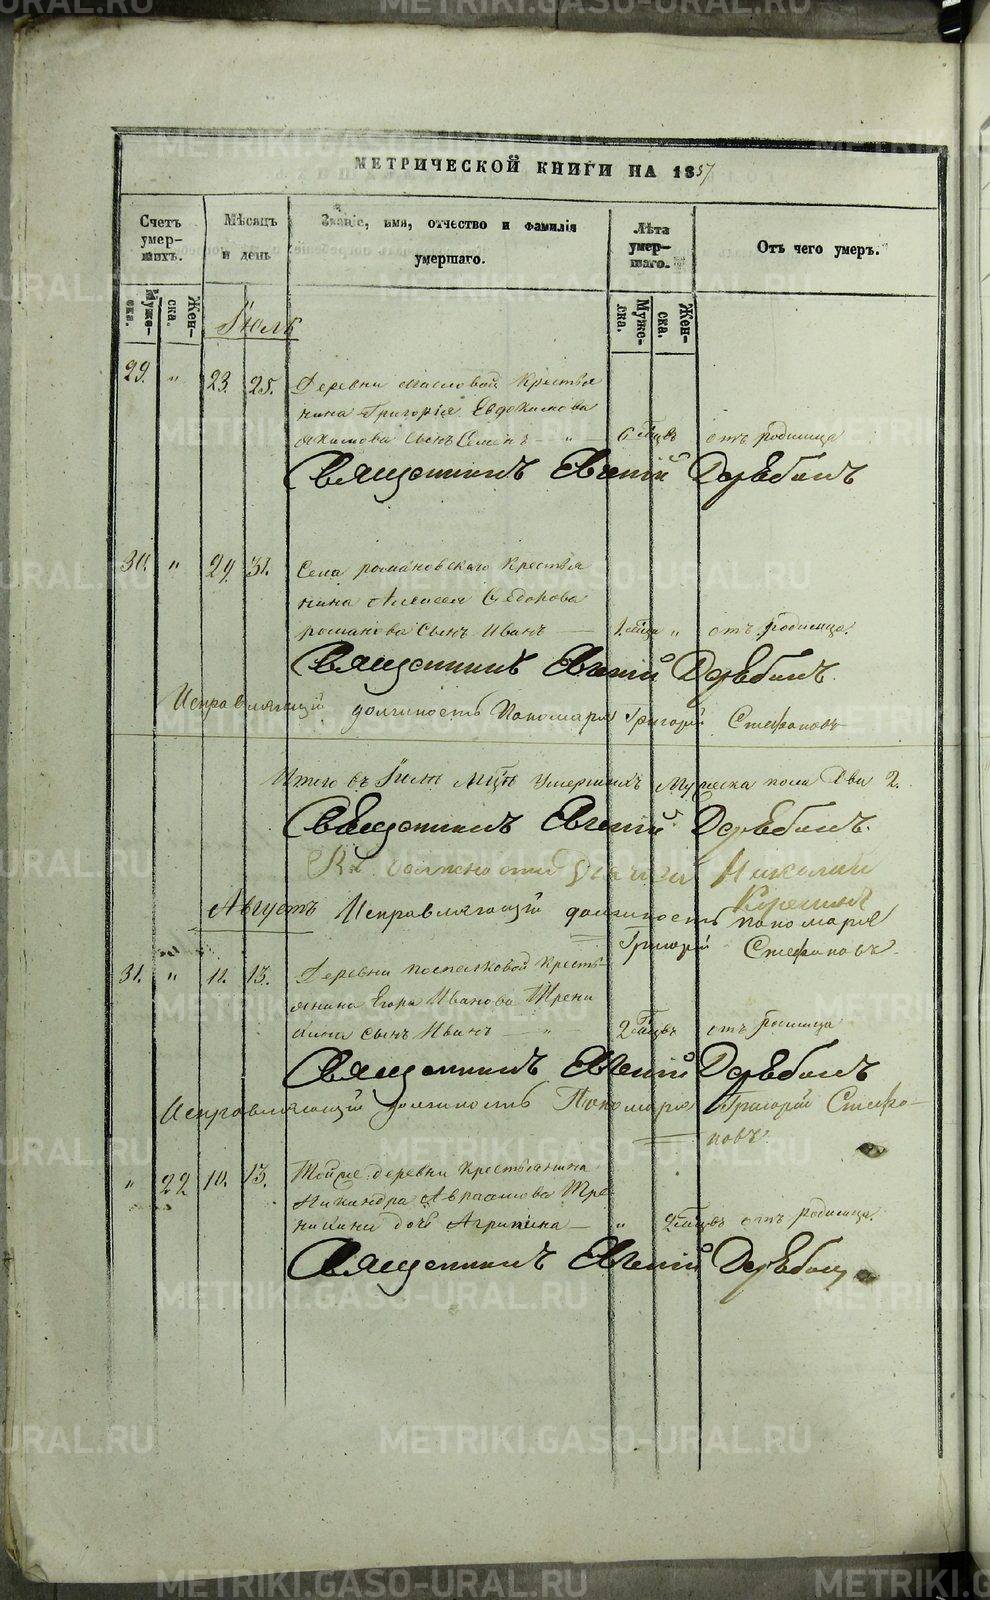 МЕТРИЧЕСКОЙ КНИГИ НА 1857
Счетъ умер-шихъ.
Мѣсяцъ и день
Званіе, имя, отчество и фамилія умершаго.
Лѣта умер-шаго.
Отъ чего умеръ.
Муже-ска.
Жен-ска.
Муже-ска.
Жен-ска.
Іюль
29. " 23. 25. Деревни Масловой Крестья
нина Григорія Евдокимова
Якимова сынъ Семенъ — " — 6 мцвъ отъ родимца
Священникъ Евгеній Дерябинъ
30. " 29. 31. Села романовскаго Крестья
нина Алексея Сидорова
романова сынъ Иванъ — 1. мца " отъ родимца.
Священникъ Евгеній Дерябинъ.
Исправляющій должность Пономаря Григорій Стефановъ
Итого въ Іюлѣ мцѣ умершихъ мужеска пола два 2.
Священникъ Евгеній Дерябинъ.
Николай
Августъ Исправляющій должность пономаря
Григорій Стефановъ.
31. " 11. 13. Деревни Крестья
янина Егора Иванова Трени
кина сынъ Иванъ — " 2 мцвъ отъ родимца
Священникъ Евгеній Дерябинъ
Исправляющій должность Пономаря Григорій Стефа-
новъ.
" 22 10. 13. Тойже деревни Крестьянина
Никандра Авраамова Тре
никина дочь Агрипина — " 2 мцвъ отъ родимца.
Священникъ Евгеній Дерябинъ
METRIKI.GASO-URAL.RU